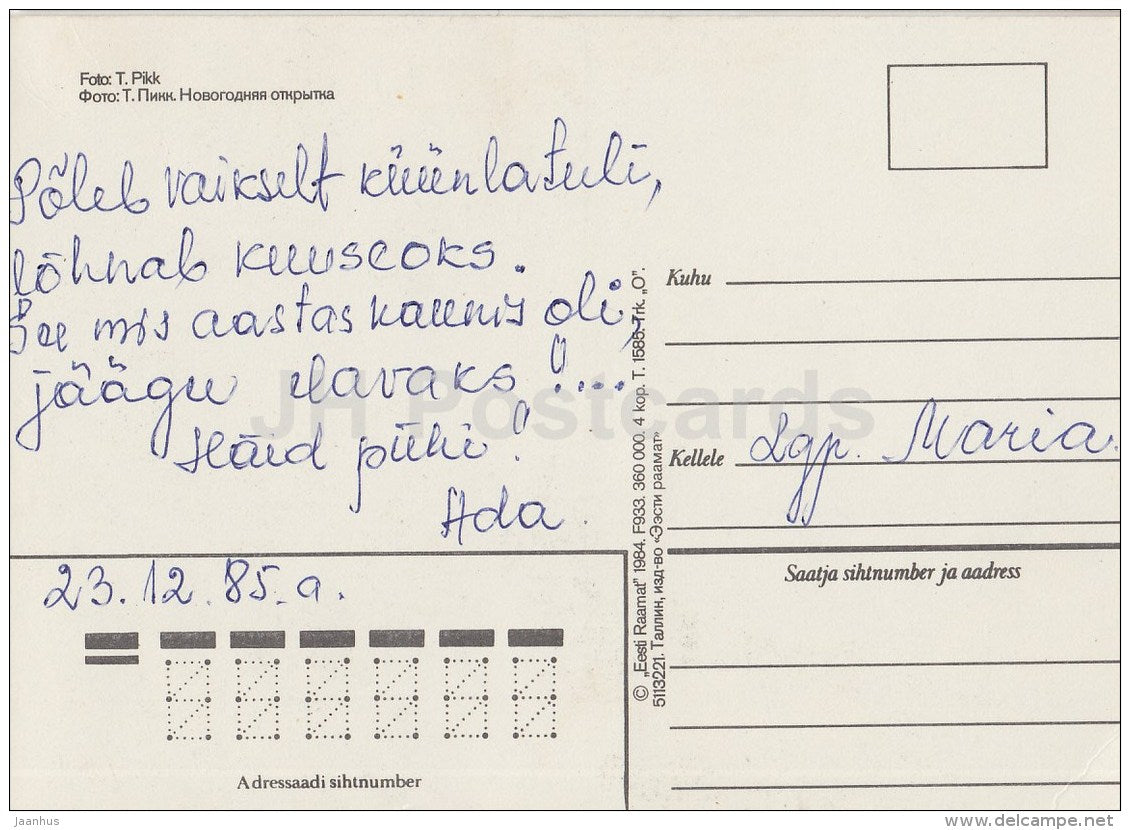 Foto: T. Pikk
Фото: Т. Пикк. Новогодняя открытка
Põleb vaikselt küünlatuli,
lõhnab kuuseoks.
See mis aastas kaunis oli,
jäägu elavaks!...
Häid pühi!
Ada.
23.12.85.a.
Adressaadi sihtnumber
© „Eesti Raamat" 1984. F933. 360 000. 4 kop. T. 1585. Trk. „O".
5113221. Таллин, изд-во «Ээсти раамат»
Kuhu
Kellele Lgp. Maria.
Saatja sihtnumber ja aadress
JH Postcards
Jaanhus
delcampe.net